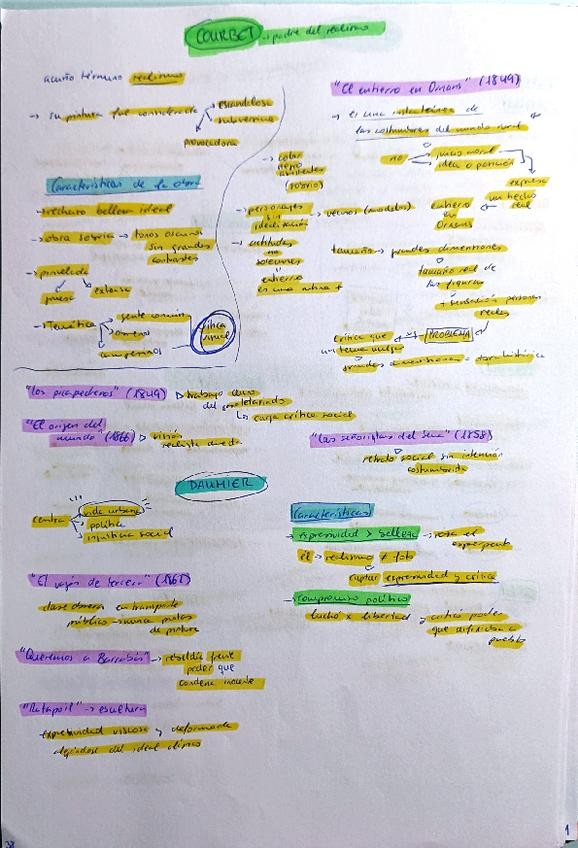 COURBET → padre del realismo
acuñó término realismo
→ su pintura fue considerada
escandalosa
subversiva
provocadora
Características de la obra
→ rechazo belleza ideal
→ obra sobria → tonos oscuros
sin grandes
contrastes
→ pincelada
gruesa
extensa
→ Temática
gente común
obreros
campesinos
crítica
social
"El entierro en Ornans" (1849)
→ es una instantánea de
las costumbres del mundo rural
no
juicio moral
idea o posición
expresa
un hecho
real
entierro
en
Ornans
→ color
negro
(sobrio)
→ personajes
sin
idealización
→ vecinos (modelos)
→ actitudes
no
solemnes
entierro
es una rutina +
tamaño → grandes dimensiones
tamaño real de
las figuras
+ sensación personas
reales
PROBLEMA
crítica que
un tema vulgar
grandes dimensiones = obra histórica
"Los picapedreros" (1849) → trabajo duro
del proletariado
↳ carga crítica social
"El origen del
mundo" (1866) → visión
realista
"Las señoritas del Sena" (1858)
retrato social sin intención
costumbrista
DAUMIER
centra
vida urbana
política
injusticia social
Características
→ expresividad > belleza → roza el
esperpento
él → realismo ≠ foto
captar expresividad y crítica
→ compromiso político
luchó x libertad y criticó poder
que defendía a
pueblo
"El vagón de tercera" (1861)
clase obrera en transporte
público → nunca
de pintura
"Queremos a Barrabás" → rebeldía frente
poder que
condena inocente
"Ratapoil" → escultura
expresividad viscosa y deformada
alejándose del ideal clásico
1